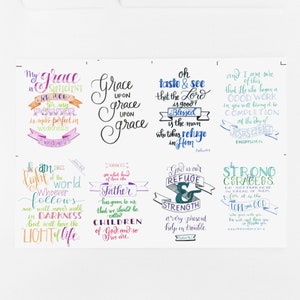 My
Grace
is SUFFICIENT
FOR YOU
for my
power
is made perfect in
weakness
Grace
UPON
grace
UPON
grace
oh
taste & see
that the Lord
is good!
Blessed
is the man
who takes refuge
in Him
and I am sure
of this
that He who began a
GOOD WORK
in you will bring it to
COMPLETION
at the day of
I am
the
Light of the
world
Whoever
follows
me will never walk
in DARKNESS
but will have the
LIGHT of life
see what kind
of love the
Father
has given to us
that we should be
called
CHILDREN
of God and so
we are
God is our
REFUGE
&
STRENGTH
a very present
help in trouble
STRONG
&
COURAGEOUS
for the
LORD your GOD